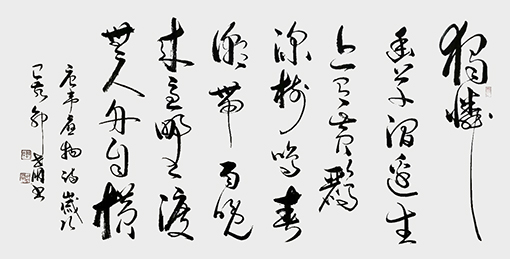 獨憐
幽草澗邊生
上有黄鸝
深樹鳴春
潮帶雨晚
来急野渡
無人舟自横
唐韋應物詩歲次
己亥書